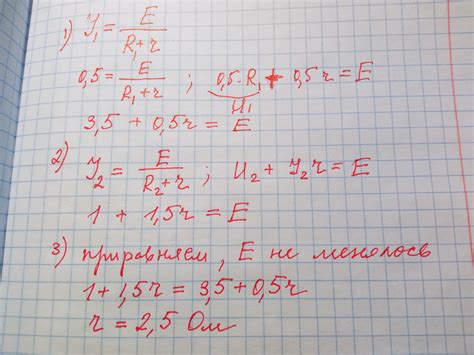 1) У₁ = E / (R₁+r)
0,5 = E / (R₁+r) ; 0,5·R₁ + 0,5r = E
U₁
3,5 + 0,5r = E
2) У₂ = E / (R₂+r) ; U₂ + У₂r = E
1 + 1,5r = E
3) приравняем, E не менялось
1 + 1,5r = 3,5 + 0,5r
r = 2,5 Ом